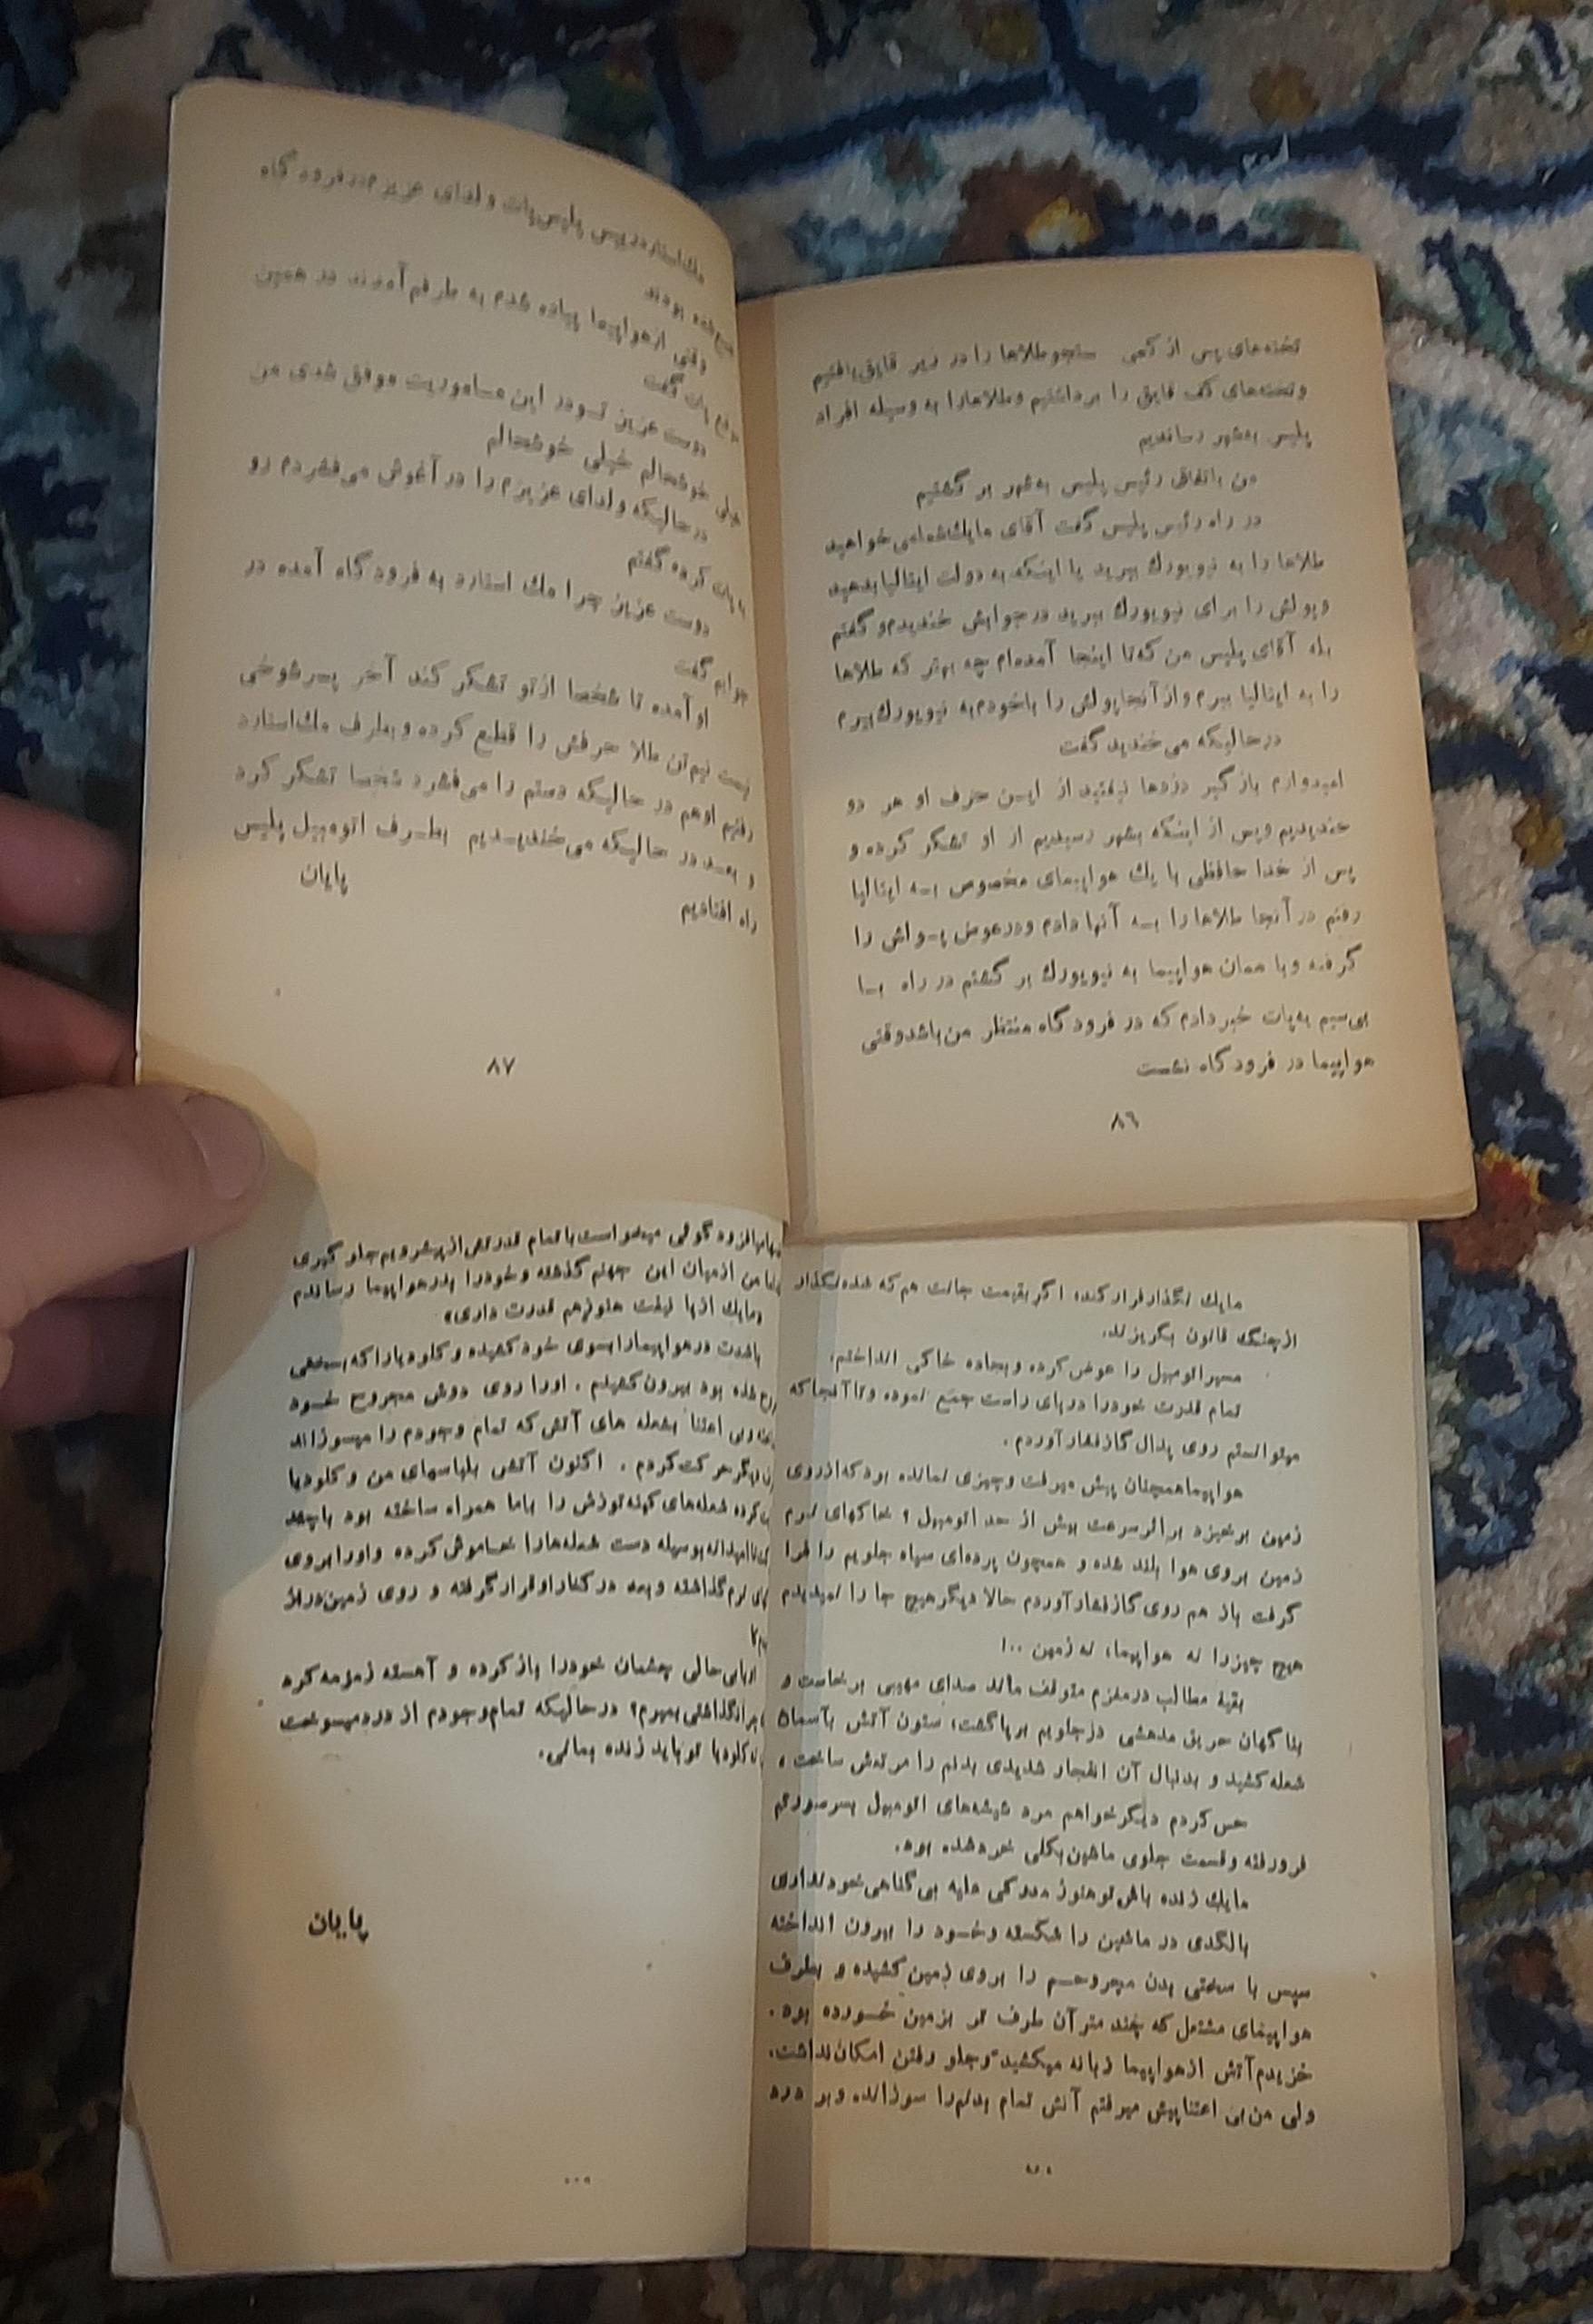 تخته‌های پس از کمی جستجو طلاها را در زیر قایق یافتیم
و تخته‌های کف قایق را برداشتیم و طلاها را به وسیله افراد
پلیس بشهر رساندیم
من باتفاق رئیس پلیس به‌شهر بر گشتیم
در راه رئیس پلیس گفت آقای مایك شما می‌خواهید
طلاها را به نیویورك ببرید یا اینکه به دولت ایتالیا بدهید
و پولش را برای نیویورك ببرید در جوابش خندیدم و گفتم
بله آقای پلیس من که تا اینجا آمده‌ام چه بهتر که طلاها
را به ایتالیا ببرم و از آنجا پولش را با خودم به نیویورك ببرم
در حالیکه می خندید گفت
امیدوارم باز گیر دزدها نیفتید از ایـن حرف او هر دو
خندیدیم و پس از اینکه بشهر رسیدیم از او تشکر کرده و
پس از خدا حافظی با یك هواپیمای مخصوص بـه ایتالیا
رفتم در آنجا طلاها را بـه آنها دادم و در عوض پـولش را
گرفته و با همان هواپیما به نیویورك بر گشتم در راه بـا
بی‌سیم به پات خبر دادم که در فرودگاه منتظر من باشد وقتی
هواپیما در فرودگاه نشست
۸۶
مك استارد رییس پلیس پات و لدای عزیزم در فرودگاه
جمع شده بودند
وقتی از هواپیما پیاده شدم به طرفم آمدند در همین
موقع پات گفت
دوست عزیز تـو در این مـاموریت موفق شدی من
خیلی خوشحالم خیلی خوشحالم
در حالیکه ولدای عزیزم را در آغوش می‌فشردم رو
به پات کرده گفتم
دوست عزیز چرا مك استارد به فرودگاه آمده در
جوابم گفت
او آمده تا شخصا از تو تشکر کند آخر پسر شوخی
نیست نیم تن طلا حرفش را قطع کرده و بطرف مك استارد
رفتیم او هم در حالیکه دستم را می‌فشرد شخصا تشکر کرد
و بعـد در حالیکه می‌خندیـدیم بطـرف اتومبیل پلیس
راه افتادیم
پایان
۸۷
مایك نگذار فرار کند، اگر بقیمت جانت هم که شده نگذار
از چنگ قانون بگریزند.
مسیر اتومبیل را عوض کرده و بجاده خاکی انداختم.
تمام قدرت خود را در پای راست جمع نموده و تا آنجا که
میتوانستم روی پدال گاز فشار آوردم.
هواپیما همچنان پیش میرفت و چیزی نمانده بود که از روی
زمین برخیزد بر اثر سرعت بیش از حد اتومبیل ، خاکهای نرم
زمین بروی هوا بلند شده و همچون پرده‌ای سیاه جلویم را فرا
گرفت باز هم روی گاز فشار آوردم حالا دیگر هیچ جا را نمیدیدم
هیچ چیز را نه هواپیما، نه زمین ..!
بقیهٔ مطالب در مغزم متوقف ماند صدای مهیبی برخاست و
بناگهان حریق مدهشی در جلویم برپا گشت، ستون آتش بآسمان
شعله کشید و بدنبال آن انفجار شدیدی بدنم را مرتعش ساخت ه
حس کردم دیگر خواهم مرد شیشه‌های اتومبیل بسر و صورتم
فرو رفته و قسمت جلوی ماشین بکلی خرد شده بود.
مایك زنده باش تو هنوز مدرکی علیه بی گناهی خود نداری
با لگدی در ماشین را شکسته و خـود را بیرون انداخته
سپس با سختی بدن مجروحـم را بروی زمین کشیده و بطرف
هواپیمای مشتعل که چند متر آن طرف تر بزمین خـورده بود .
خزیدم آتش از هواپیما زبانه میکشید و جلو رفتن امکان نداشت.
ولی من بی اعتنا پیش میرفتم آتش تمام بدنم را سوزانده و بر درد
افزود گوئی میخواست با تمام قدرتش از پیشرویم جلوگیری
من از میان این جهنم گذشته و خود را بدر هواپیما رساندم
«مایك از پا نیفت هنوز هم قدرت داری»
باشدت در هواپیما را بسوی خود کشیده و کلودیا را که بسختی
شده بود بیرون کشیدم . او را روی دوش مجروح خـود
بی اعتنا بشعله های آتش که تمام وجودم را میسوزاند
حرکت کردم . اکنون آتش بلباسهای من و کلودیا
کرده شعله‌های کینه توزش را با ما همراه ساخته بود با چند
ناامیدانه بوسیله دست شعله‌ها را خـاموش کرده و او را بروی
نرم گذاشته و بعد در کنار او قرار گرفته و روی زمین دراز
بی حالی چشمان خود را باز کرده و آهسته زمزمه کرد
نگذاشتی بمیرم؟ در حالیکه تمام وجودم از درد میسوخت
کلودیا تو باید زنده بمانی.
پایان